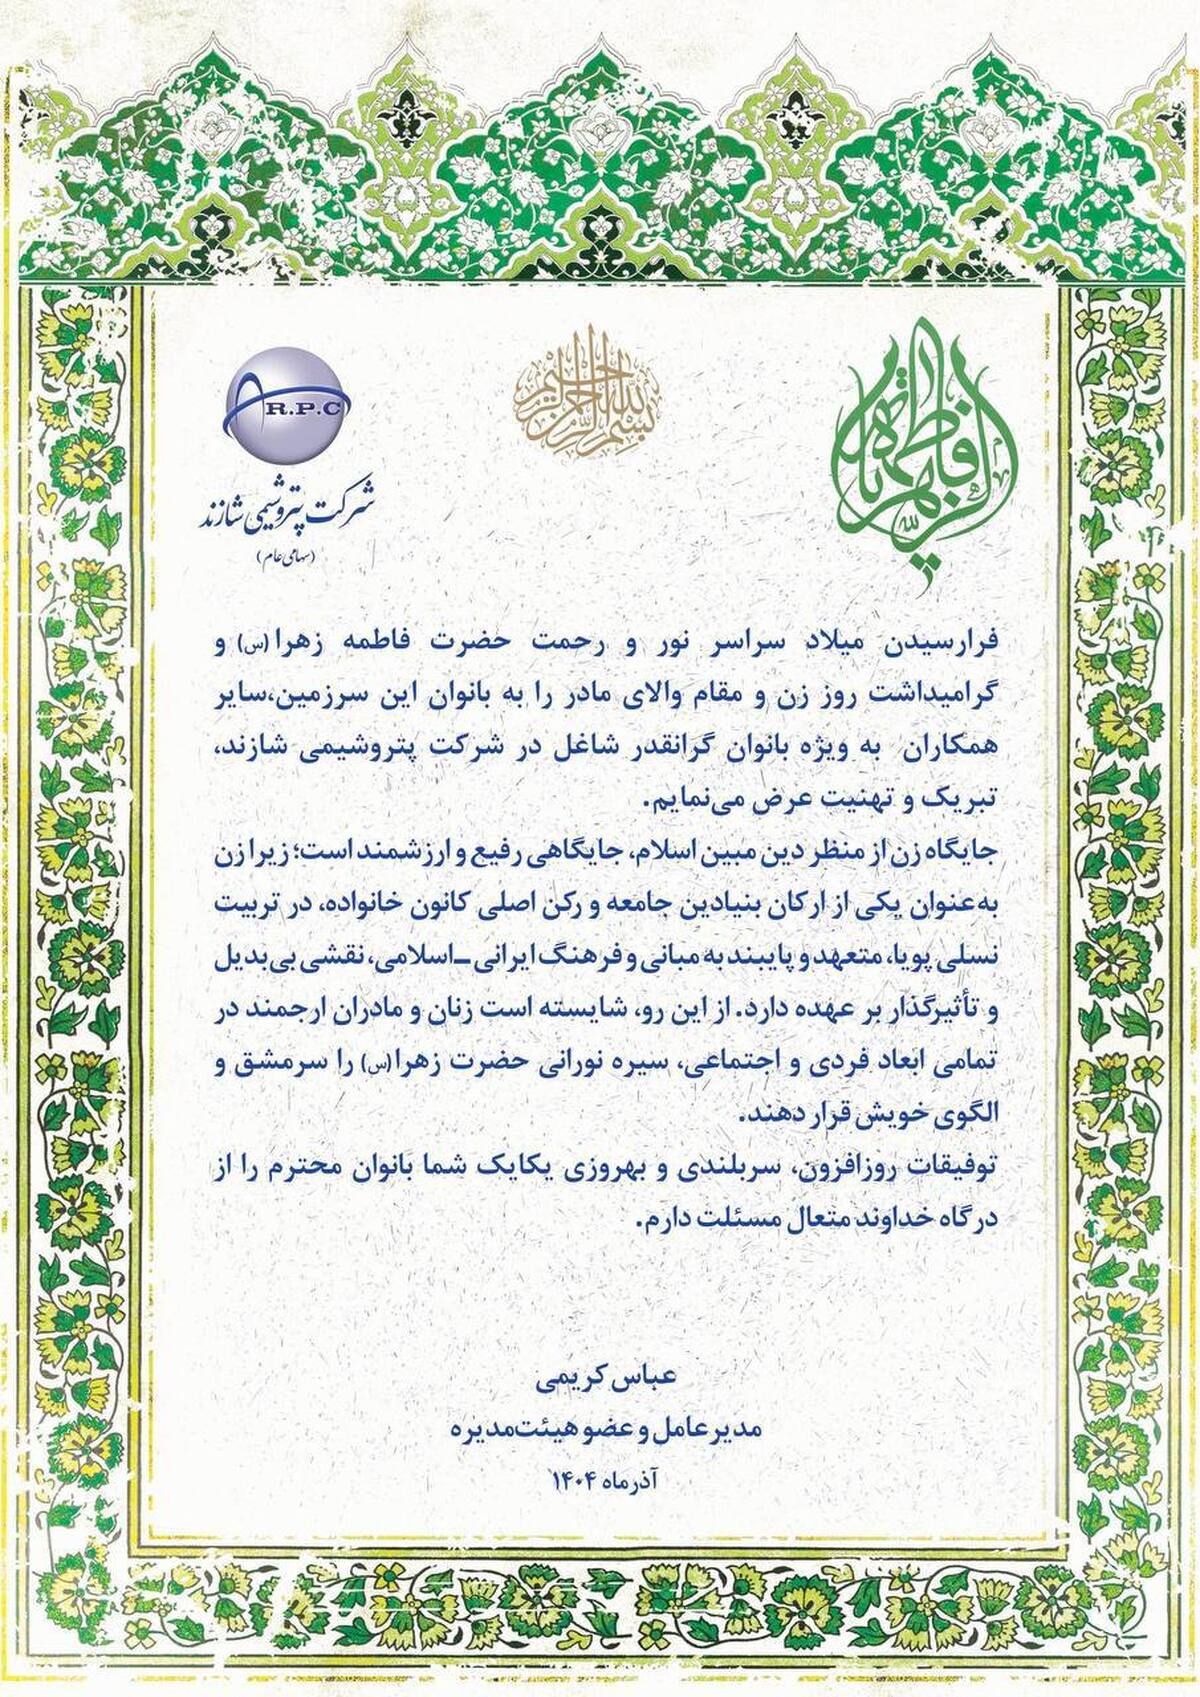 بسم الله الرحمن الرحیم
فاطمة الزهراء
A R.P.C
شرکت پتروشیمی شازند
(سهامی عام)
فرارسیدن میلاد سراسر نور و رحمت حضرت فاطمه زهرا(س) و
گرامیداشت روز زن و مقام والای مادر را به بانوان این سرزمین،سایر
همکاران به ویژه بانوان گرانقدر شاغل در شرکت پتروشیمی شازند،
تبریک و تهنیت عرض می‌نمایم.
جایگاه زن از منظر دین مبین اسلام، جایگاهی رفیع و ارزشمند است؛ زیرا زن
به‌عنوان یکی از ارکان بنیادین جامعه و رکن اصلی کانون خانواده، در تربیت
نسلی پویا، متعهد و پایبند به مبانی و فرهنگ ایرانی ـ اسلامی، نقشی بی‌بدیل
و تأثیرگذار بر عهده دارد. از این رو، شایسته است زنان و مادران ارجمند در
تمامی ابعاد فردی و اجتماعی، سیره نورانی حضرت زهرا(س) را سرمشق و
الگوی خویش قرار دهند.
توفیقات روزافزون، سربلندی و بهروزی یکایک شما بانوان محترم را از
درگاه خداوند متعال مسئلت دارم.
عباس کریمی
مدیرعامل و عضو هیئت‌مدیره
آذرماه ۱۴۰۴